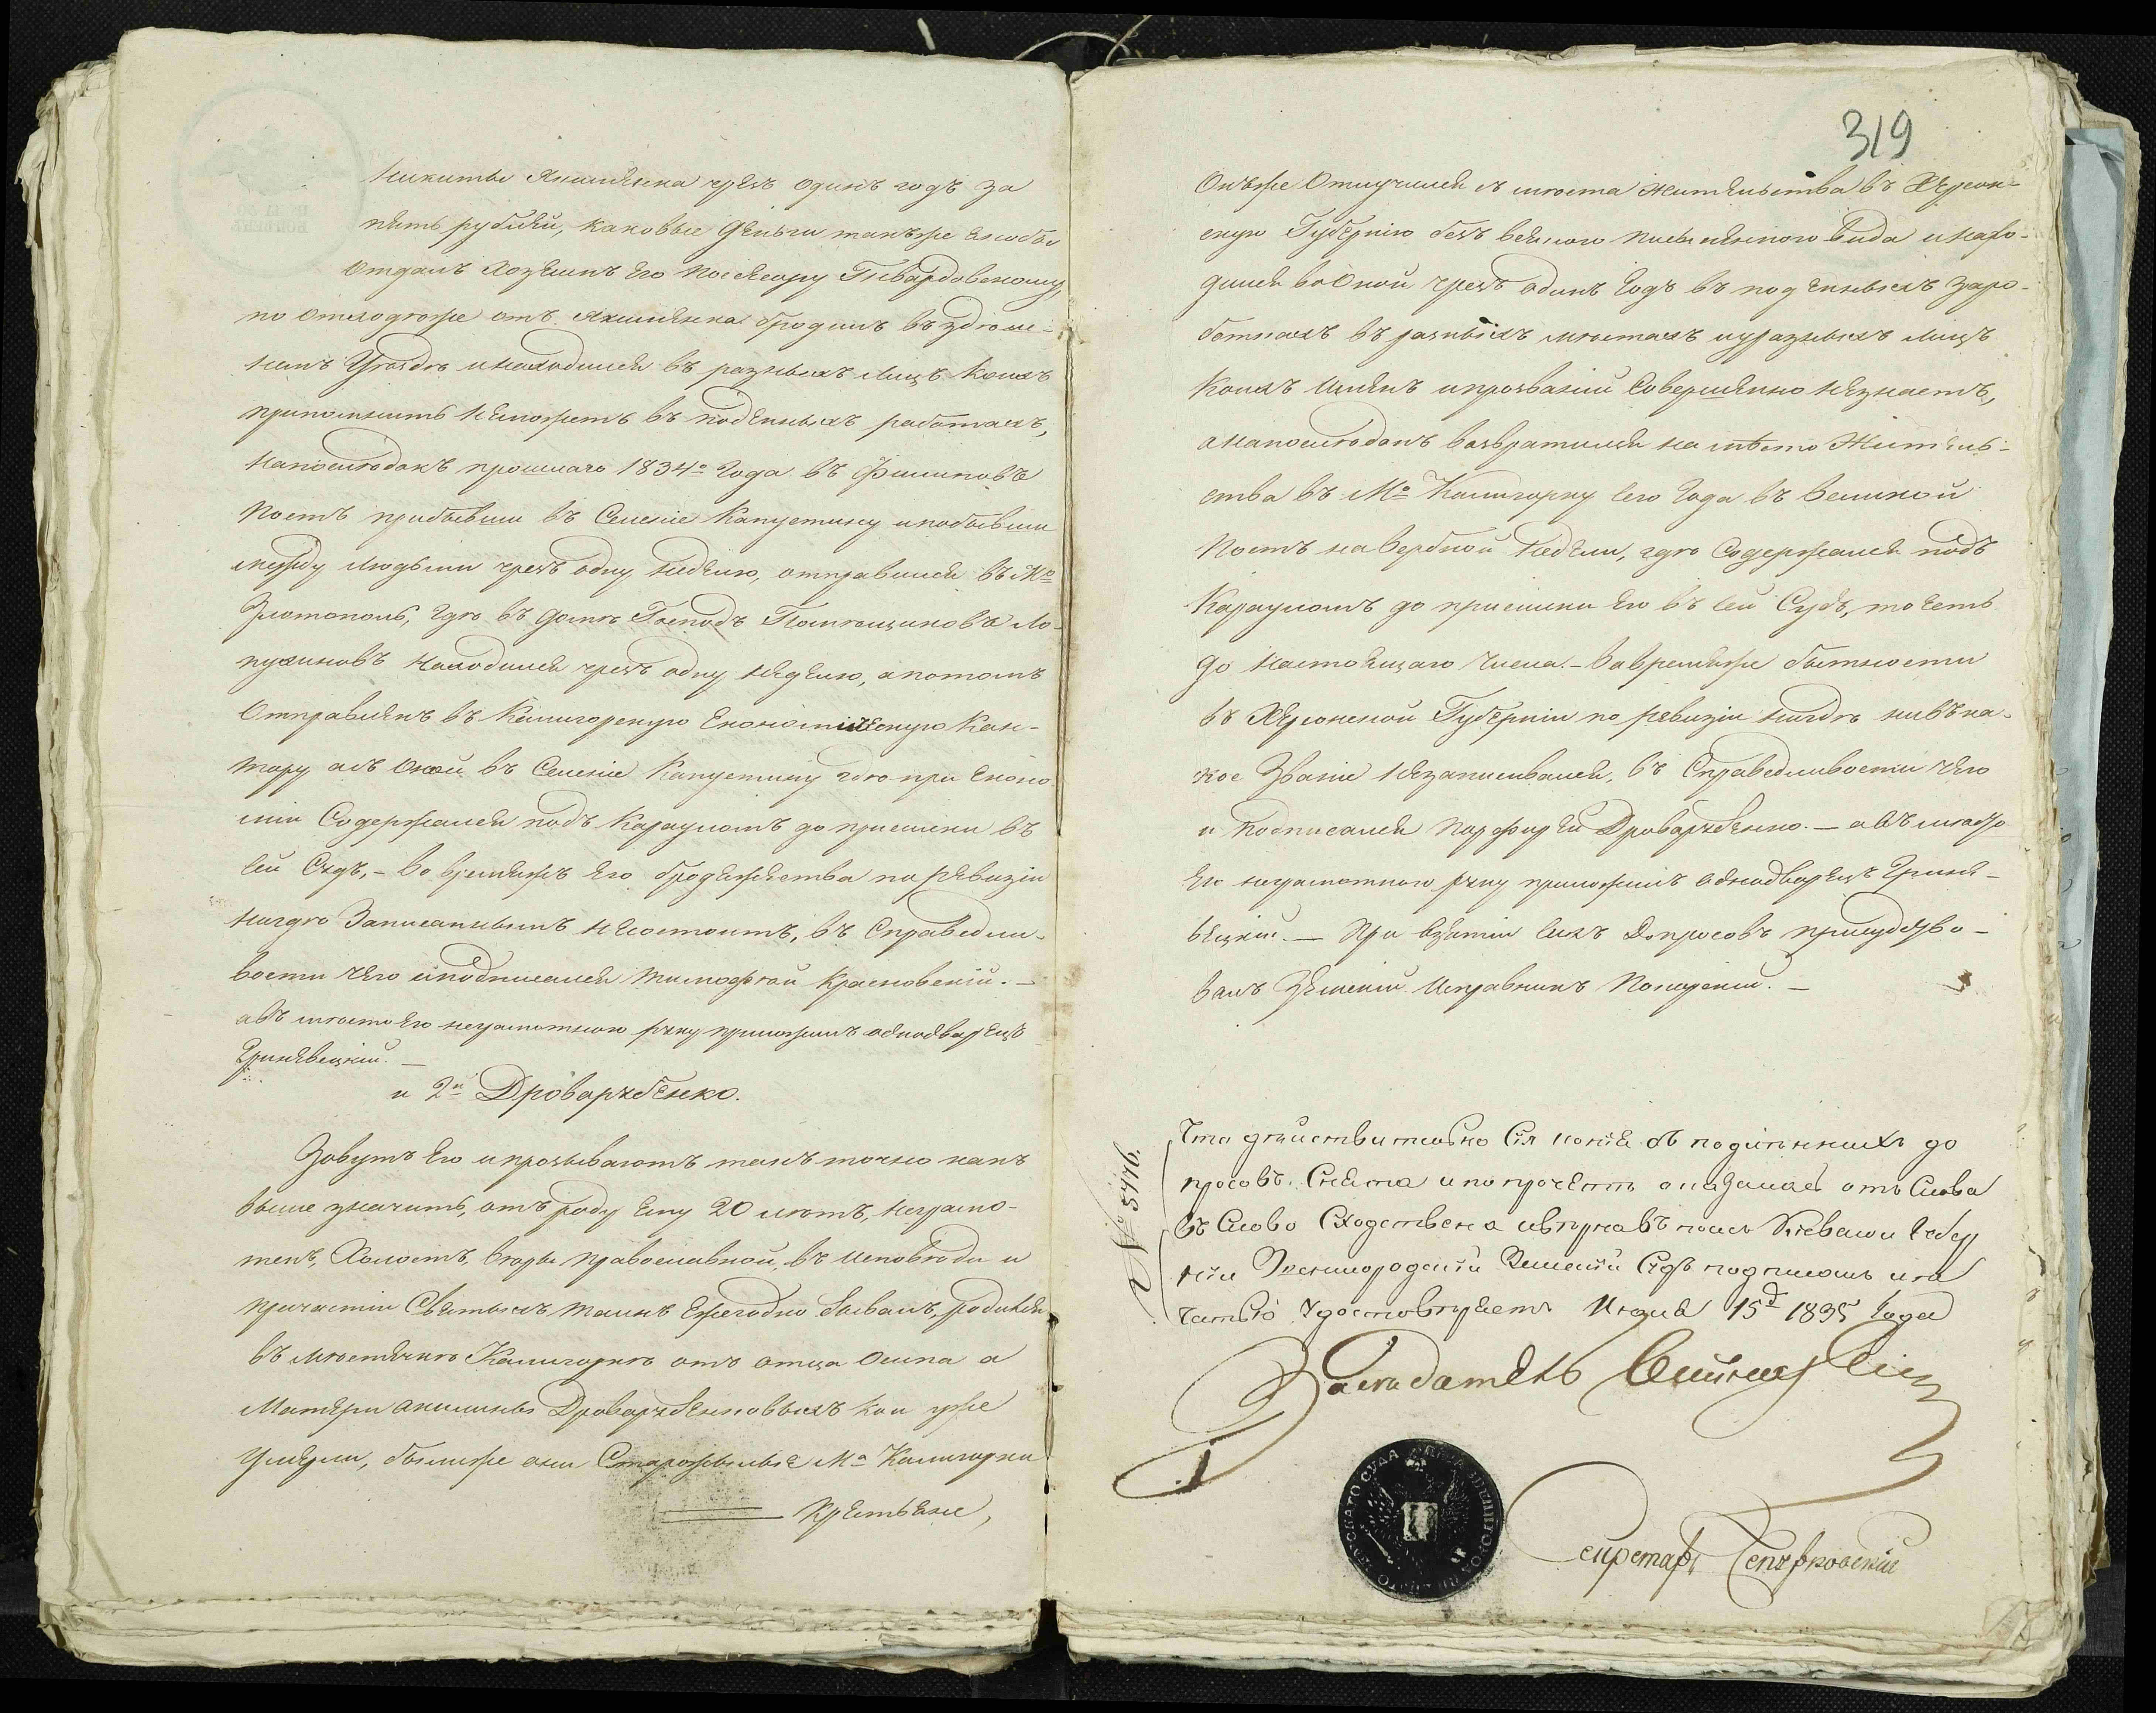 Никиты Якименка чрезъ одинъ годъ за
пять рублей, каковые деньги также
отдалъ хозяинъ его Посессору Гневардовскому,
по отходѣже отъ Якименка бродилъ въ здѣш-
немъ Уѣздѣ и находился въ разныхъ лицъ коихъ
припомнить неможетъ въ поденныхъ работахъ,
напослѣдокъ прошлаго 1834го года въ Филиповъ
Постъ прибывши въ Селеніе Капустину и побывши
между людьми чрезъ одну недѣлю, отправился въ Мо
Златополь, гдѣ въ домѣ Господъ Помѣщиковъ Ло-
пухиновъ находился чрезъ одну недѣлю, а потомъ
отправленъ въ Калигорскую Економическую Кан-
тору а съ оной въ Селеніе Капустину гдѣ при Еконо
міи содержался подъ карауломъ до присылки въ
сей Судъ, – во времяжъ его бродяжества по ревизіи
нигдѣ записаннымъ несостоитъ, въ справедли-
вости чего и подписался Тимофѣй Красновскій. —
а въ мѣсто его неграмотного руку приложилъ однодворецъ
Гриневецкій. —
и 2й Дроварубенко.
Зовутъ его и прозываютъ такъ точно какъ
выше значитъ, отъ роду ему 20 лѣтъ, неграмо-
тенъ, холостъ, вѣры православной, въ исповѣди и
причастіи Святыхъ таинъ ежегодно бывалъ, родился
въ мѣстечкѣ Калигоркѣ отъ отца Осипа а
матери Акилины Дроварубенковыхъ кои уже
умерли, былиже они старожилые Ма Калигорки
крестьяне,
319
Онъже отлучился съ мѣста жительства въ Херсон-
скую Губернію безъ всякого письменного вида и нахо-
дился во оной чрезъ одинъ годъ въ поденныхъ зара-
боткахъ въ разныхъ мѣстахъ и у разныхъ лицъ
коихъ именъ и прозваній совершенно незнаетъ,
а напослѣдокъ возвратился на мѣсто житель-
ства въ Мо Калигорку сего года въ великой
постъ на вербной недѣли, гдѣ содержался подъ
карауломъ до присылки его въ сей Судъ, то есть
до настоящаго числа. – Во времяже бытности
въ Херсонской Губерніи по ревизіи нигдѣ ни въ ка-
кое званіе незаписывался, въ справедливости чего
и подписался Парфирей Дроварубенко. — а въ мѣсто
его неграмотного руку приложилъ однодворецъ Грине-
вецкій. — При взятіи сихъ допросовъ присудство-
валъ земскій Исправникъ —
№ 5476.
Что дѣйствительно сія копія съ подлинныхъ до
просовъ снята и по прочетѣ оказалась отъ слова
въ слово сходственна въ томъ Кіевской Губер
ніи Звенигородскій Земскій Судъ подписомъ и пе
чатью удостовѣряетъ Июля 15д 1835 года
Засѣдатель
Секретарь